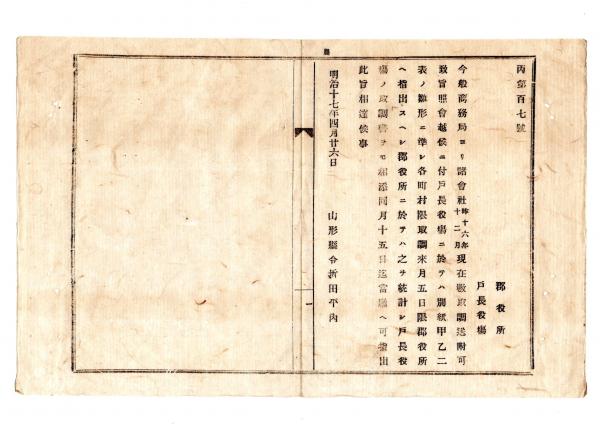 丙第百七號
郡役所
戸長役場
今般商務局ヨリ諸會社昨十六年十二月現在數取調送附可
致旨照會越候ニ付戸長役場ニ於テハ別紙甲乙二
表ノ雛形ニ準シ各町村限取調來月五日限郡役所
ヘ指出スヘシ郡役所ニ於テハ之ヲ統計シ戸長役
場ノ取調書ヲモ相添同月十五日迄當廳ヘ可指出
此旨相達候事
明治十七年四月廿六日
山形縣令折田平内
一